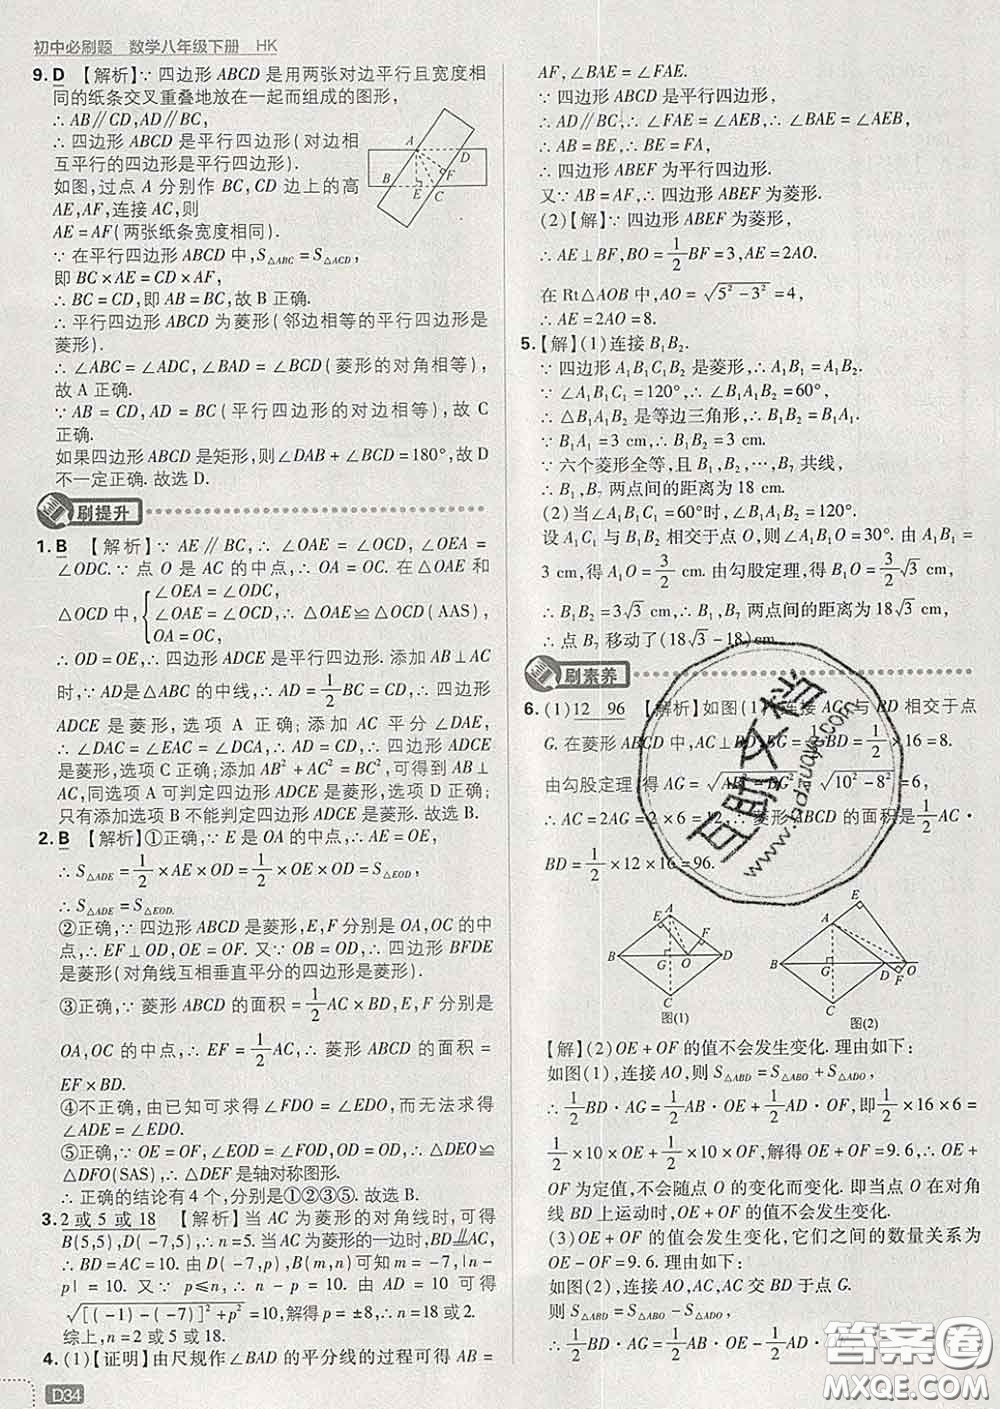 初中必刷题 数学八年级下册 HK
9. D 【解析】∵ 四边形 ABCD 是用两张对边平行且宽度相
同的纸条交叉重叠地放在一起而组成的图形，
∴ AB∥CD，AD∥BC，
∴ 四边形 ABCD 是平行四边形（对边相
互平行的四边形是平行四边形）.
如图，过点 A 分别作 BC，CD 边上的高
AE，AF，连接 AC，则
AE = AF（两张纸条宽度相同）.
∵ 在平行四边形 ABCD 中，S△ABC = S△ACD，
即 BC × AE = CD × AF，
∴ BC = CD，即 AB = BC，故 B 正确.
∴ 平行四边形 ABCD 为菱形（邻边相等的平行四边形是
菱形）.
∴ ∠ABC = ∠ADC，∠BAD = ∠BCD（菱形的对角相等），
故 A 正确.
∵ AB = CD，AD = BC（平行四边形的对边相等），故 C
正确.
如果四边形 ABCD 是矩形，则∠DAB + ∠BCD = 180°，故 D
不一定正确. 故选 D.
A
B
D
F
E
C
刷提升
1. B 【解析】∵ AE∥BC，∴ ∠OAE = ∠OCD，∠OEA =
∠ODC. ∵ 点 O 是 AC 的中点，∴ OA = OC. 在△OAE 和
△OCD 中，{∠OEA = ∠ODC，
∠OAE = ∠OCD，∴ △OAE≌△OCD（AAS），
OA = OC，
∴ OD = OE，∴ 四边形 ADCE 是平行四边形. 添加 AB⊥AC
时，∵ AD 是 Rt△ABC 的中线，∴ AD = 1/2 BC = CD，∴ 四边形
ADCE 是菱形，选项 A 正确. 添加 AC 平分∠DAE，
∴ ∠DAC = ∠EAC = ∠DCA，∴ AD = CD，∴ 四边形 ADCE
是菱形，选项 C 正确；添加 AB² + AC² = BC²，可得到 AB⊥
AC，同选项 A 可判定四边形 ADCE 是菱形，选项 D 正确；
只有添加选项 B 不能判定四边形 ADCE 是菱形. 故选 B.
2. B 【解析】①正确，∵ E 是 OA 的中点，∴ AE = OE，
∴ S△ADE = 1/2 × AE × OD = 1/2 × OE × OD = S△EOD，
∴ S△ADE = S△EOD.
②正确，∵ 四边形 ABCD 是菱形，E，F 分别是 OA，OC 的中
点，∴ EF⊥OD，OE = OF. 又∵ OB = OD，∴ 四边形 BFDE
是菱形（对角线互相垂直平分的四边形是菱形）.
③正确，∵ 菱形 ABCD 的面积 = 1/2 AC × BD，E，F 分别是
OA，OC 的中点，∴ EF = 1/2 AC，∴ 菱形 ABCD 的面积 =
EF × BD.
④不正确，由已知可求得∠FDO = ∠EDO，而无法求得
∠ADE = ∠EDO.
⑤正确，∵ OE = OF，∠EOD = ∠FOD，OD = OD，∴ △DEO≌
△DFO（SAS），∴ △DEF 是轴对称图形.
∴ 正确的结论有 4 个，分别是①②③⑤. 故选 B.
3. 2 或 5 或 18 【解析】当 AC 为菱形的对角线时，可得
B(5,5)，D(−7,5)，∴ n = 5. 当 AC 为菱形的一边时，BD∥AC，
∴ BD = AC = 10. 由 D(−7，p)，B(m，n)可知 m = −7，|n −
p| = 10. 又∵ p≤n，∴ n − p = 10. 由 AD = 10 可得
√([(−1) − (−7)]² + p²) = 10，解得 p = ±8，∴ n = 18 或 2.
综上，n = 2 或 5 或 18.
4. （1）【证明】由尺规作∠BAD 的平分线的过程可得 AB =
D34
AF，∠BAE = ∠FAE.
∵ 四边形 ABCD 是平行四边形，
∴ AD∥BC，∴ ∠FAE = ∠AEB，∴ ∠BAE = ∠AEB，
∴ AB = BE，∴ BE = FA，
∴ 四边形 ABEF 为平行四边形.
又∵ AB = AF，∴ 四边形 ABEF 为菱形.
（2）【解】∵ 四边形 ABEF 为菱形，
∴ AE⊥BF，BO = 1/2 BF = 3，AE = 2AO.
在 Rt△AOB 中，AO = √(5² − 3²) = 4，
∴ AE = 2AO = 8.
5. 【解】（1）连接 B₁B₂.
∵ 四边形 A₁B₁C₁B₂ 是菱形，∴ A₁B₁ = A₁B₂.
∵ ∠A₁B₁C₁ = 120°，∴ ∠B₁A₁B₂ = 60°，
∴ △B₁A₁B₂ 是等边三角形，∴ B₁B₂ = B₁A₁.
∵ B₁A₁ = 3 cm，∴ B₁B₂ = 3 cm.
∵ 六个菱形全等，且 B₁，B₂，…，B₇ 共线，
∴ B₁，B₇ 两点间的距离为 18 cm.
（2）当∠A₁B₁C₁ = 60°时，∠B₁A₁B₂ = 120°.
设 A₁C₁ 与 B₁B₂ 相交于点 O，则∠A₁B₁O = 30°. 由 A₁B₁ =
3 cm，得 A₁O = 3/2 cm. 由勾股定理，得 B₁O = 3/2 √3 cm，
∴ B₁B₂ = 3√3 cm，∴ B₁，B₇ 两点间的距离为 18√3 cm，
∴ 点 B₇ 移动了（18√3 − 18）cm.
刷素养
6. （1）12 96 【解析】如图（1），连接 AC 与 BD 相交于点
G. 在菱形 ABCD 中，AC⊥BD，BG = 1/2 BD = 1/2 × 16 = 8.
由勾股定理，得 AG = √(AB² − BG²) = √(10² − 8²) = 6，
∴ AC = 2AG = 2 × 6 = 12，∴ 菱形 ABCD 的面积 = 1/2 AC ·
BD = 1/2 × 12 × 16 = 96.
A
E
F
B
G
O
D
C
图(1)
E
A
B
G
D
O
F
C
图(2)
【解】（2）OE + OF 的值不会发生变化. 理由如下：
如图（1），连接 AO，则 S△ABD = S△ABO + S△ADO，
∴ 1/2 BD · AG = 1/2 AB · OE + 1/2 AD · OF，即 1/2 × 16 × 6 =
1/2 × 10 × OE + 1/2 × 10 × OF，解得 OE + OF = 9.6，∴ OE +
OF 为定值，不会随点 O 的变化而变化. 即当点 O 在对角
线 BD 上运动时，OE + OF 的值不会发生变化.
（3）OE + OF 的值会发生变化，它们之间的数量关系为
OE − OF = 9.6. 理由如下：
如图（2），连接 AO，AC，AC 交 BD 于点 G.
则 S△ABD = S△ABO − S△ADO，
∴ 1/2 BD · AG = 1/2 AB · OE − 1/2 AD · OF，
互助文档
答案圈
MXQE.COM